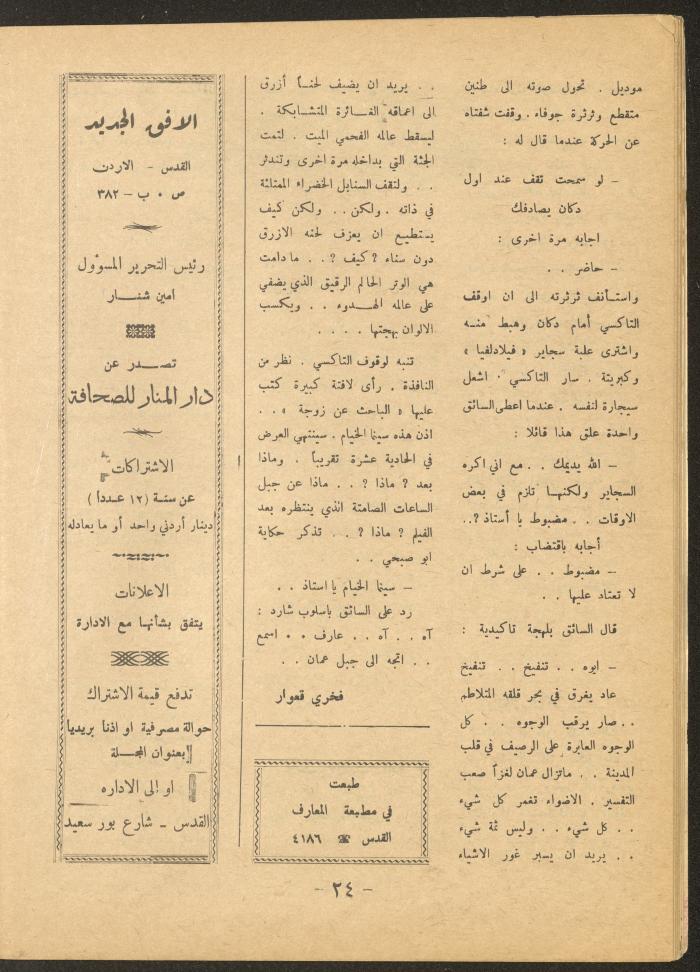 موديل . تحول صوته الى طنين
متقطع وثرثرة جوفاء . وقفت شفتاه
عن الحركة عندما قال له :
– لو سمحت تقف عند اول
دكان يصادفك
اجابه مرة اخرى :
– حاضر . .
واستأنف ثرثرته الى ان اوقف
التاكسي أمام دكان وهبط منه
واشترى علبة سجاير « فيلادلفيا »
وكبريتة . سار التاكسي . اشعل
سيجارة لنفسه . عندما اعطى السائق
واحدة علق هذا قائلا :
– الله يديمك . . مع اني اكره
السجاير ولكنها تلزم في بعض
الاوقات . . مضبوط يا أستاذ ؟..
أجابه باقتضاب :
– مضبوط . . على شرط ان
لا تعتاد عليها . .
قال السائق بلهجة تاكيدية :
– ايوه . . تنفيخ . . تنفيخ
عاد يغرق في بحر قلقه المتلاطم
. . صار يرقب الوجوه . . كل
الوجوه العابرة على الرصيف في قلب
المدينة . . ماتزال عمان لغزاً صعب
التفسير . الاضواء تغمر كل شيء
. . كل شيء . . وليس ثمة شيء
. . يريد ان يسبر غور الاشياء
. . يريد ان يضيف لحناً أزرق
الى اعماقه الغائرة المتشابكة .
ليسقط عالمه الفحمي الميت . لتمت
الجثة التي بداخله مرة اخرى وتندثر
. . ولتقف السنابل الخضراء الممتلئة
في ذاته . ولكن . . ولكن كيف
يستطيع ان يعزف لحنه الازرق
دون سناء ؟ كيف ؟ . . مادامت
هي الوتر الحالم الرقيق الذي يضفي
على عالمه الهدوء . . ويكسب
الالوان بهجتها . . . .
تنبه لوقوف التاكسي . نظر من
النافذة . رأى لافتة كبيرة كتب
عليها « الباحث عن زوجة » . .
اذن هذه سينما الخيام . سينتهي العرض
في الحادية عشرة تقريباً . وماذا
بعد ؟ ماذا ؟ . . ماذا عن جبل
الساعات الصامتة الذي ينتظره بعد
الفيلم ؟ ماذا ؟ . . تذكر حكاية
ابو صبحي . .
– سينما الخيام يا استاذ . .
رد على السائق باسلوب شارد :
آه . . آه . . عارف . . اسمع
. . اتجه الى جبل عمان . .
فخري قعوار
طبعت
في مطبعة المعارف
القدس ☎ ٤١٨٦
الافق الجديد
القدس – الاردن
ص . ب – ٣٨٢
رئيس التحرير المسؤول
امين شنار
تصدر عن
دار المنار للصحافة
الاشتراكات
عن سنة ( ١٢ عددا )
دينار أردني واحد أو ما يعادله
الاعلانات
يتفق بشأنها مع الادارة
تدفع قيمة الاشتراك
حوالة مصرفية او اذنا بريديا
بعنوان المجلة
او إلى الاداره
القدس – شارع بور سعيد
– ٢٤ –